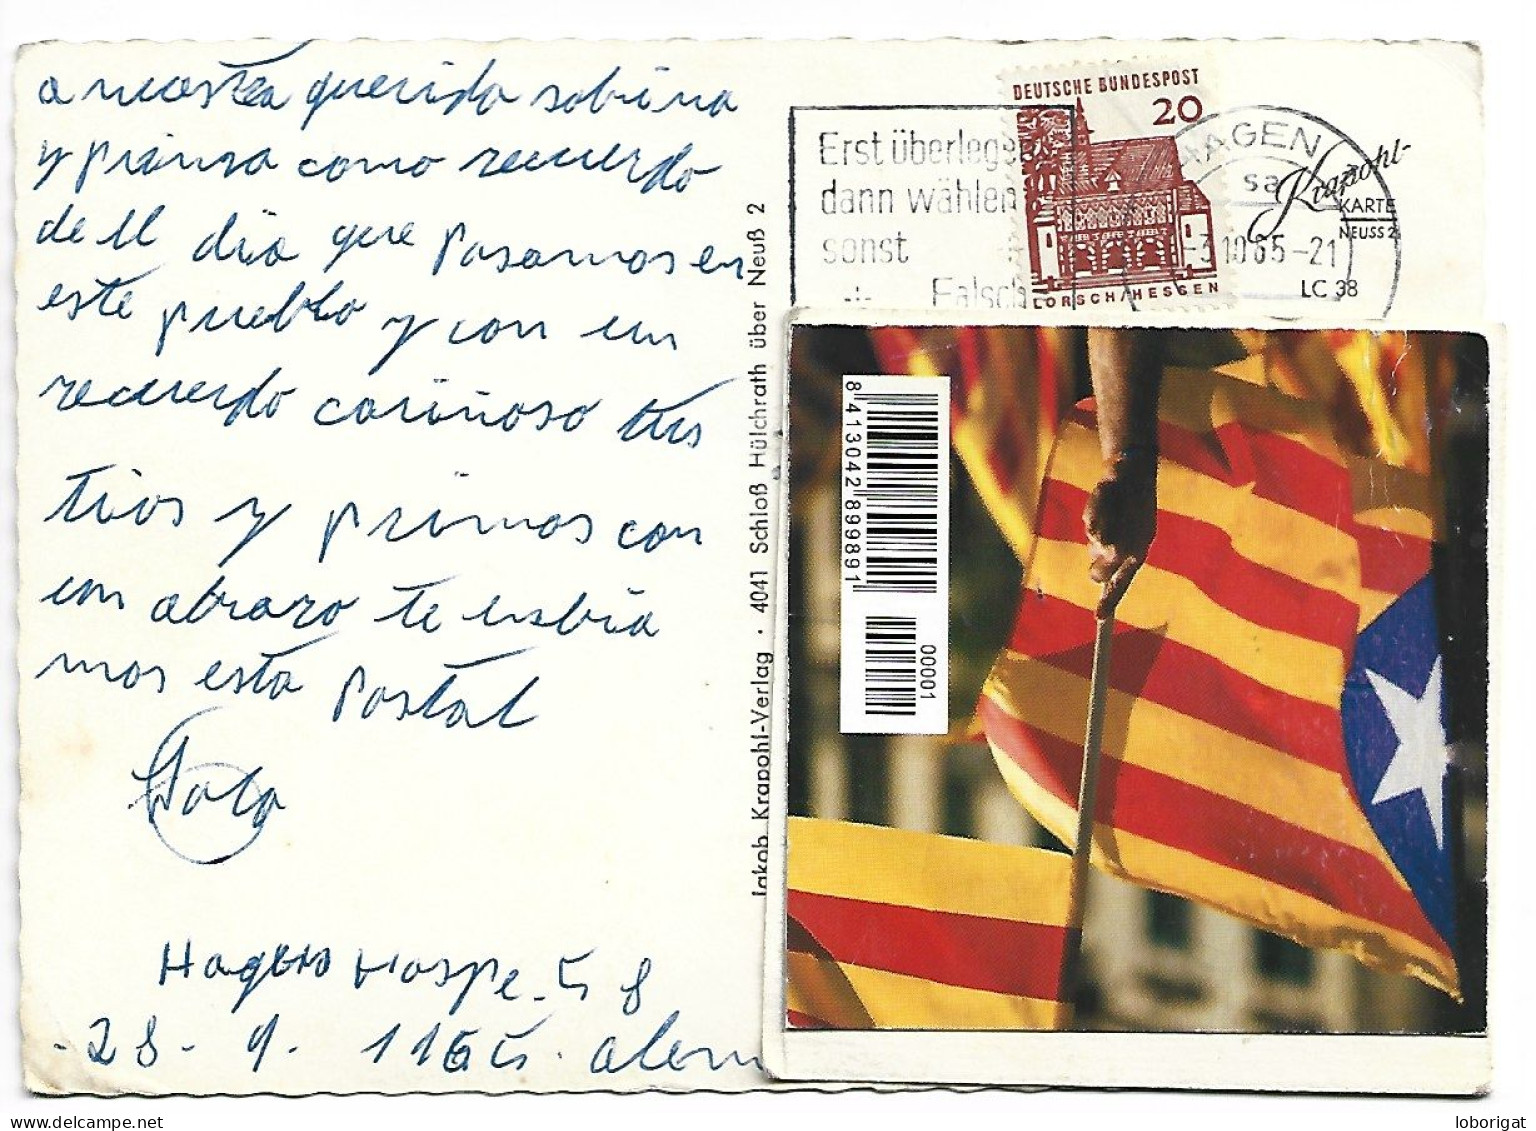 a nuestra querida sobrina
y prima como recuerdo
de el dia que pasamos en
este pueblo y con un
recuerdo cariñoso tus
tios y primos con
un abrazo te enbia
mos esta postal
Hagen Haspe. 58
-28-9.1165. alem
Jakob Krapohl-Verlag · 4041 Schloß Hülchrath über Neuß 2
Erst überlegen
dann wählen
sonst
Falsch
DEUTSCHE BUNDESPOST
20
LORSCH/HESSEN
HAGEN
sa
-3.10.65-21
Krapohl-
KARTE
NEUSS 2
LC 38
8 413042 899891
00001
loborigat
delcampe.net